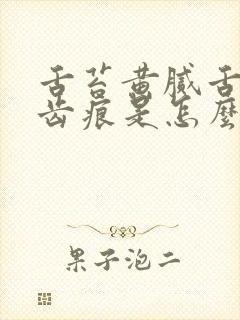 舌苔黄腻舌
齿痕是怎麼
果子泡二